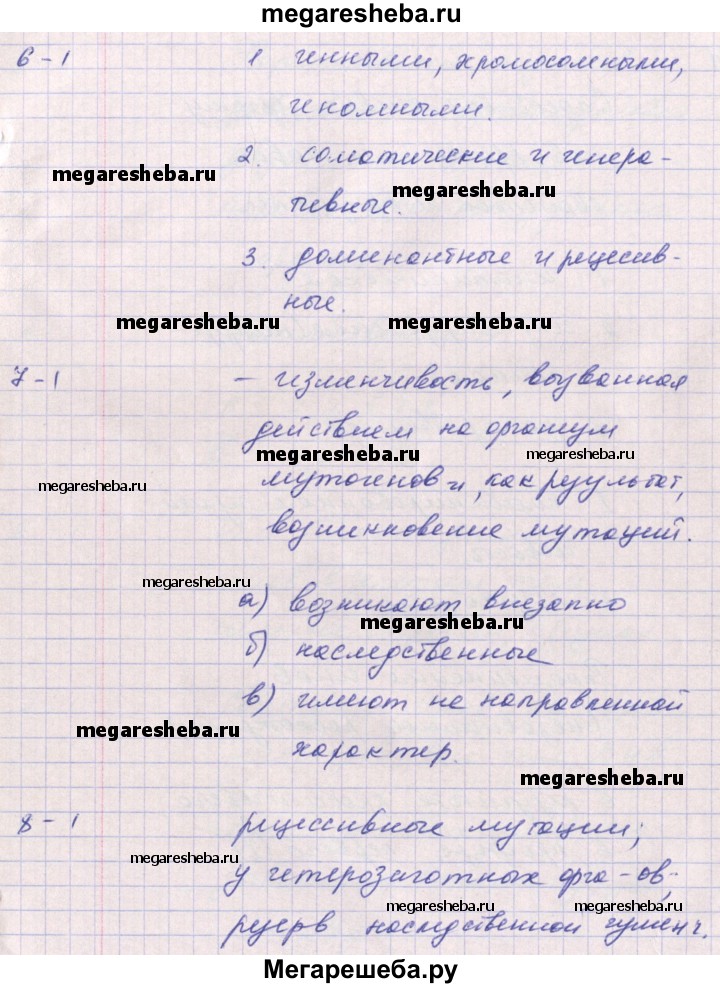 megaresheba.ru
6-1 1 генными, хромосомными,
геномными.
2. соматические и генера-
megaresheba.ru megaresheba.ru
тевные.
3. доминантные и рецесив-
ные.
megaresheba.ru megaresheba.ru
7-1 - изменчивость, вызванная
действием на организм
megaresheba.ru megaresheba.ru
мутогенов и, как результат,
megaresheba.ru
возникновение мутаций.
megaresheba.ru
а) возникают внезапно
megaresheba.ru
б) наследственные
в) имеют не направленной
megaresheba.ru
характер.
megaresheba.ru
8-1 рецессивные мутации;
megaresheba.ru
у гетерозиготных орга-ов,
megaresheba.ru megaresheba.ru
резерв наследственной
Мегарешеба.ру